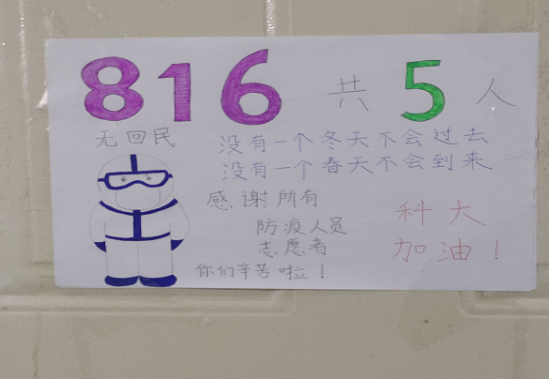 816 共 5 人
无回民
没有一个冬天不会过去
没有一个春天不会到来
感谢所有
防疫人员
志愿者
你们辛苦啦！
科大
加油！